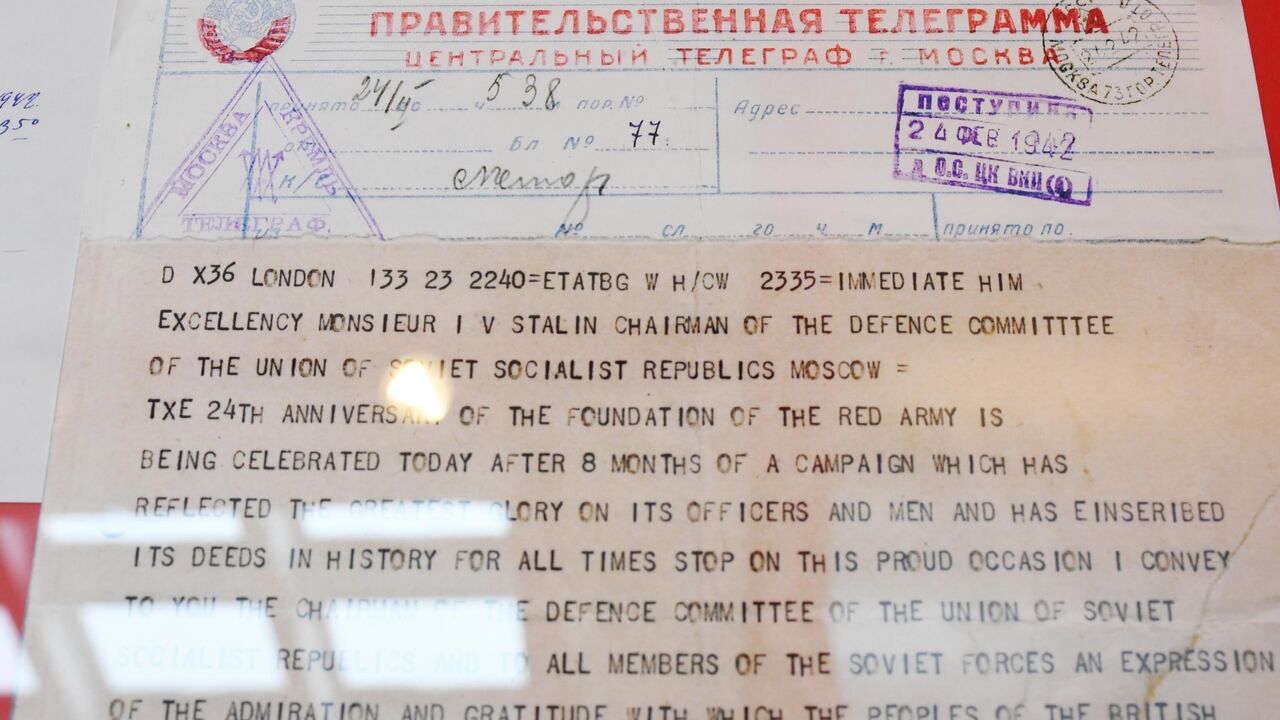 ПРАВИТЕЛЬСТВЕННАЯ ТЕЛЕГРАММА
ЦЕНТРАЛЬНЫЙ ТЕЛЕГРАФ г. МОСКВА
МОСКВА 73 ГОР. ТЕЛЕГР
1942.
35⁰
принято 24/II ч 5 38 м пор. №
Адрес
ПОСТУПИЛА
24 ФЕВ 1942
О.С. ЦК ВКП(б)
Бл № 77.
МОСКВА КРЕМЛЬ
ТЕЛЕГРАФ.
№ сл. го ч. м принято по.
D X36 LONDON 133 23 2240=ETATBG W H/CW 2335=IMMEDIATE HIM
EXCELLENCY MONSIEUR I V STALIN CHAIRMAN OF THE DEFENCE COMMITTTEE
OF THE UNION OF SOVIET SOCIALIST REPUBLICS MOSCOW =
TXE 24TH ANNIVERSARY OF THE FOUNDATION OF THE RED ARMY IS
BEING CELEBRATED TODAY AFTER 8 MONTHS OF A CAMPAIGN WHICH HAS
REFLECTED THE GREATEST GLORY ON ITS OFFICERS AND MEN AND HAS EINSERIBED
ITS DEEDS IN HISTORY FOR ALL TIMES STOP ON THIS PROUD OCCASION I CONVEY
TO YOU THE CHAIRMAN OF THE DEFENCE COMMITTEE OF THE UNION OF SOVIET
SOCIALIST REPUBLICS AND TO ALL MEMBERS OF THE SOVIET FORCES AN EXPRESSION
OF THE ADMIRATION AND GRATITUDE WITH WHICH THE PEOPLES OF THE BRITISH